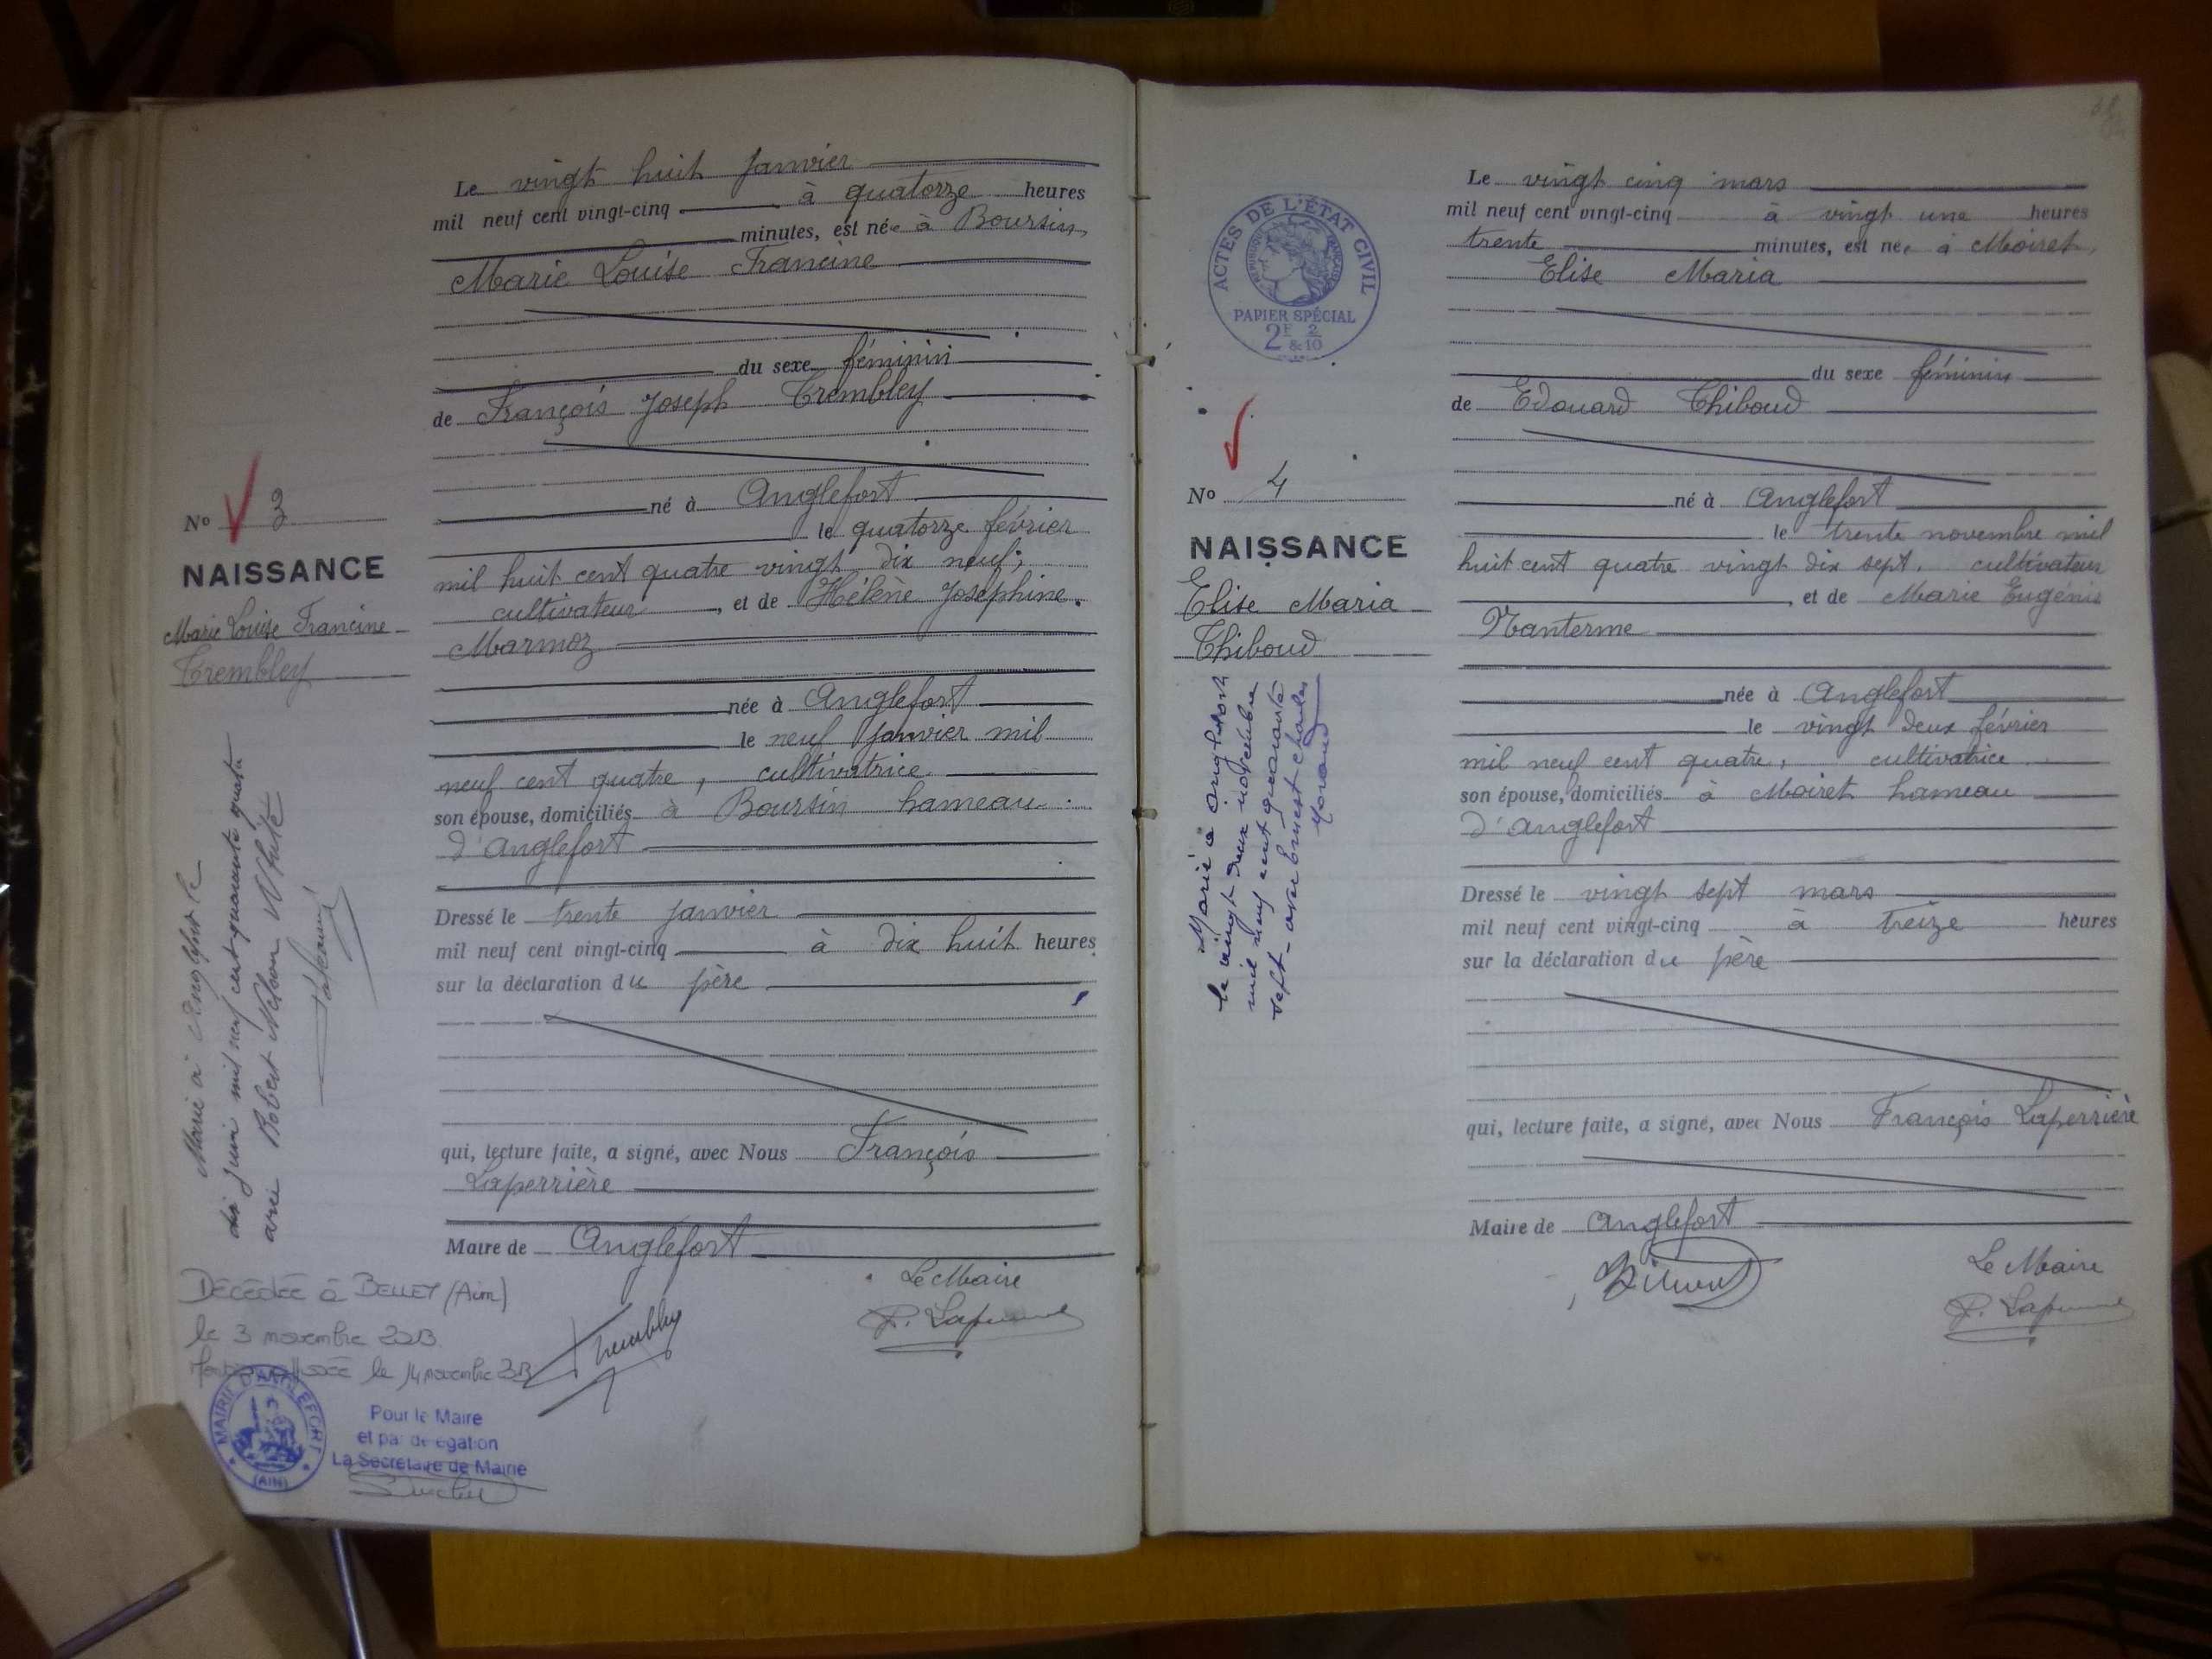 Le vingt huit Janvier
mil neuf cent vingt-cinq à quatorze heures
minutes, est née à Boursin,
Marie Louise Francine
du sexe féminin
de François Joseph Trembley
né à Anglefort
le quatorze février
mil huit cent quatre vingt dix neuf;
cultivateur, et de Hélène Joséphine
Marmoz
née à Anglefort
le neuf Janvier mil
neuf cent quatre, cultivatrice
son épouse, domiciliés à Boursin hameau
d'Anglefort
Dressé le trente Janvier
mil neuf cent vingt-cinq à dix huit heures
sur la déclaration du père
qui, lecture faite, a signé, avec Nous François
Laperrière
Maire de Anglefort
Le Maire
Trembley
No 3
NAISSANCE
Marie Louise Francine
Trembley
Marié à Anglefort le
dix juin mil neuf cent quarante quatre
avec Robert Nelson White
Décédée à BELLEY (Ain)
le 3 novembre 2013
le 14 novembre
MAIRIE D'ANGLEFORT
(AIN)
Pour le Maire
et par délégation
La Secrétaire de Mairie
ACTES DE L'ÉTAT CIVIL
PAPIER SPÉCIAL
2F & 2/10
No 4
NAISSANCE
Elise Maria
Thiboud
Marié à Anglefort
le vingt deux novembre
mil neuf cent quarante
sept - avec Ernest Charles
Le vingt cinq mars
mil neuf cent vingt-cinq à vingt une heures
trente minutes, est née à Moiret,
Elise Maria
du sexe féminin
de Edouard Thiboud
né à Anglefort
le trente novembre mil
huit cent quatre vingt dix sept. cultivateur
, et de Marie Eugénie
Nanterme
née à Anglefort
le vingt deux février
mil neuf cent quatre, cultivatrice
son épouse, domiciliés à Moiret hameau
d'Anglefort
Dressé le vingt sept mars
mil neuf cent vingt-cinq à treize heures
sur la déclaration du père
qui, lecture faite, a signé, avec Nous François Laperrière
Maire de Anglefort
Le Maire